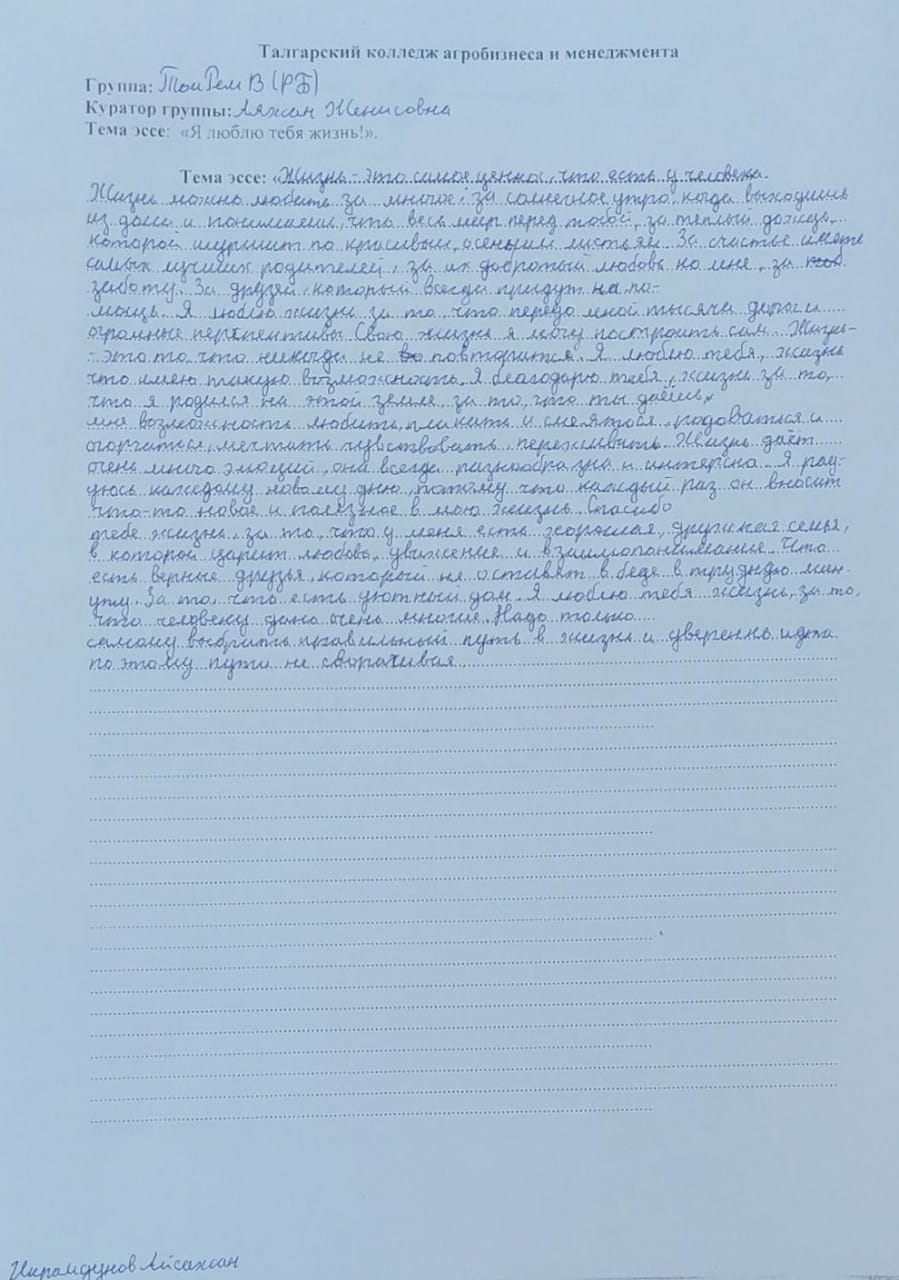 Талгарский колледж агробизнеса и менеджмента
Группа: ТоиРем В (РБ)
Куратор группы: Ляжан Женисовна
Тема эссе: «Я люблю тебя жизнь!».
Тема эссе: «Жизнь - это самое ценное, что есть у человека.
Жизнь можно любить за многое; за солнечное утро, когда выходишь
из дома и понимаеш, что весь мир перед тобой, за тёплый дождь,
которой шуршит по красивым, осеньим листьям. За счастье иметь
самых лучших родителей, за их добротый любовь ко мне, за
заботу. За друзей, который всегда придут на по-
мощь. Я люблю жизнь за то, что передо мной тысячи дорог и
огромные перпективы. Свою жизнь я могу построить сам. Жизнь-
- это то, что никогда не повторится. Я люблю тебя, жизнь
что имею такую возможность. Я благодарю тебя, жизнь за то,
что я родился на этой земле, за то, что ты даёшь,
мне возможность любить, плакать и смеяться, радоваться и
огорчаться, мечтать, чувствовать, переживать. Жизнь даёт
очень много эмоций, она всегда разнообразна и интересна. Я рад-
уюсь каждому новому дню, потому что каждый раз он вносит
что-то новое и полезное в мою жизнь. Спасибо
тебе жизнь, за то, что у меня есть хорошая, дружная семья,
в которой царит любовь, уважение и взаимопонимание. Что
есть верные друзья, который не оставят в беде в трудную мин-
уту. За то, что есть уютный дом. Я люблю тебя жизнь, за то,
что человеку дано очень многое. Надо только
самому выбрать правильный путь в жизни и уверенно идти
по этому пути не сворачивая.
Икрамдунов Айсажан